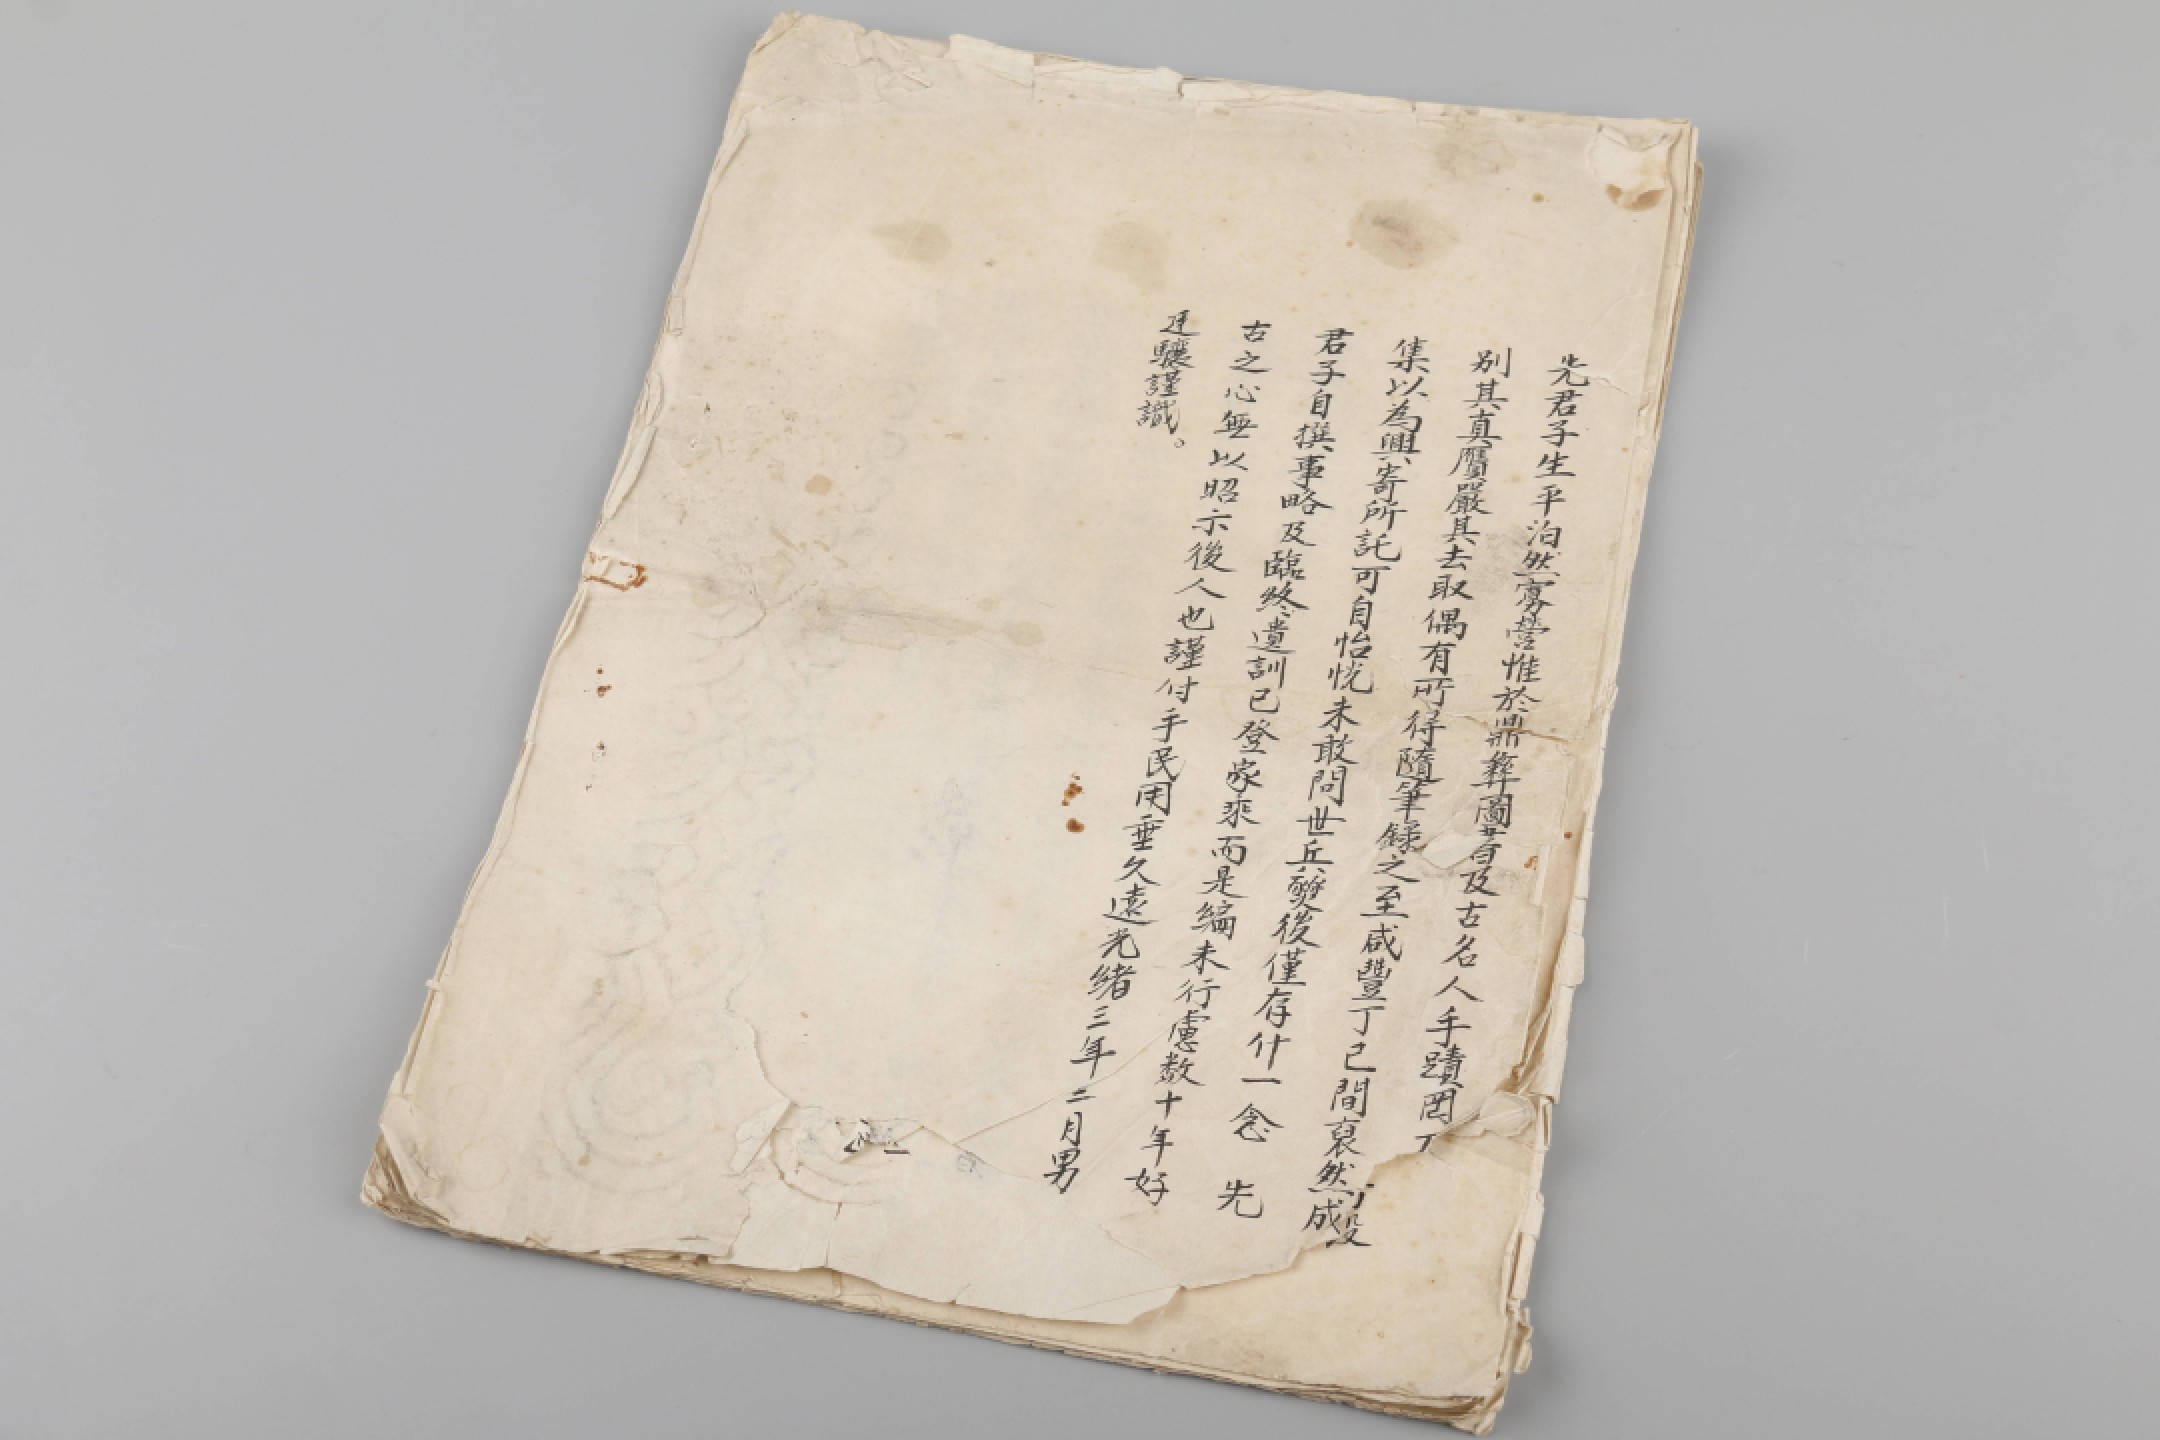 先君子生平泊然寡營惟於鼎彝圖書及古名人手蹟罔不
別其真贋嚴其去取偶有所得隨筆錄之至咸豐丁巳間裒然成
集以為興寄所託可自怡悅未敢問世兵燹後僅存什一念 先
君子自撰事略及臨終遺訓已登家乘而是編未行慮數十年好
古之心無以昭示後人也謹付手民用垂久遠光緒三年二月男
廷驤謹識。